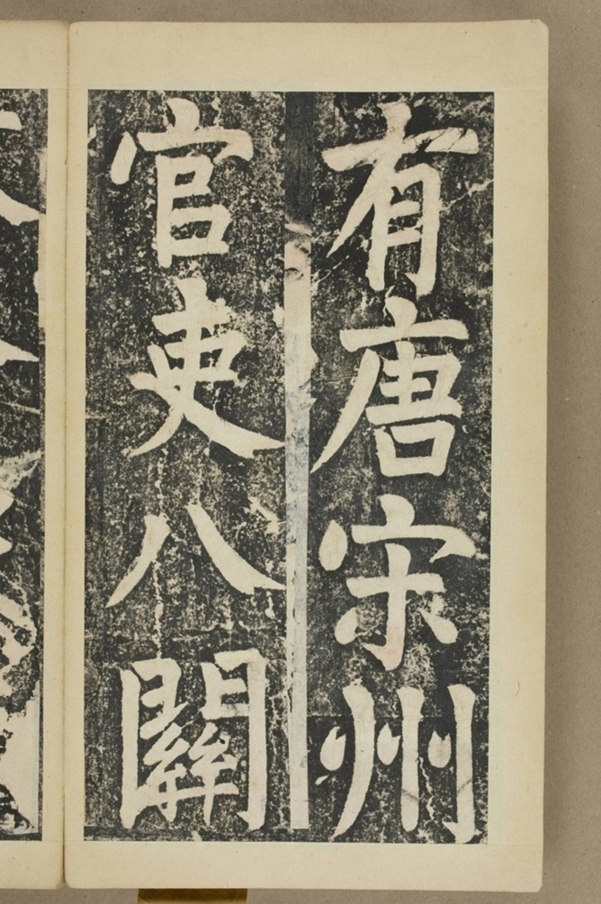 有唐宋州
官吏八關